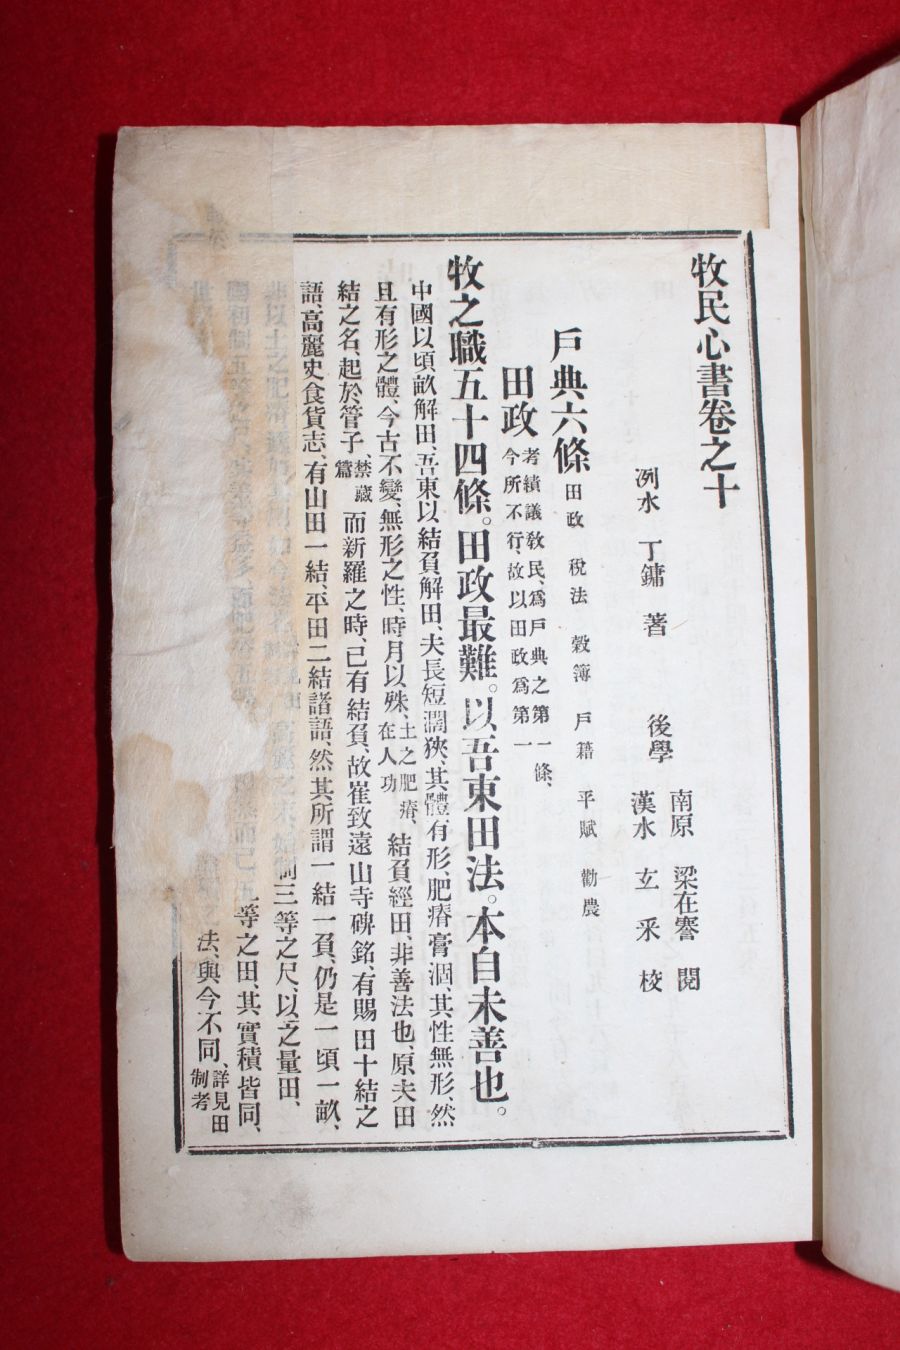 牧民心書卷之十
洌水 丁鏞 著
後學
南原 梁在謇 閱
漢水 玄采 校
戶典六條 田政 稅法 穀簿 戶籍 平賦 勸農
田政 考績議敎民、爲戶典之第一條、今所不行、故以田政爲第一
牧之職五十四條。田政最難。以吾東田法。本自未善也。
中國以頃畝解田、吾東以結負解田、夫長短濶狹、其體有形、肥瘠膏涸、其性無形、然
且有形之體、今古不變、無形之性、時月以殊、土之肥瘠、在人功 結負經田、非善法也、原夫田
結之名、起於管子、禁藏篇 而新羅之時、已有結負、故崔致遠山寺碑銘、有賜田十結之
語、高麗史食貨志、有山田一結、平田二結諸語、然其所謂一結一負、仍是一頃一畝、
非以土之肥瘠 高麗之末、始制三等之尺、以之量田、
而已、五等之田、其實積皆同、
法、與今不同、詳見田制考